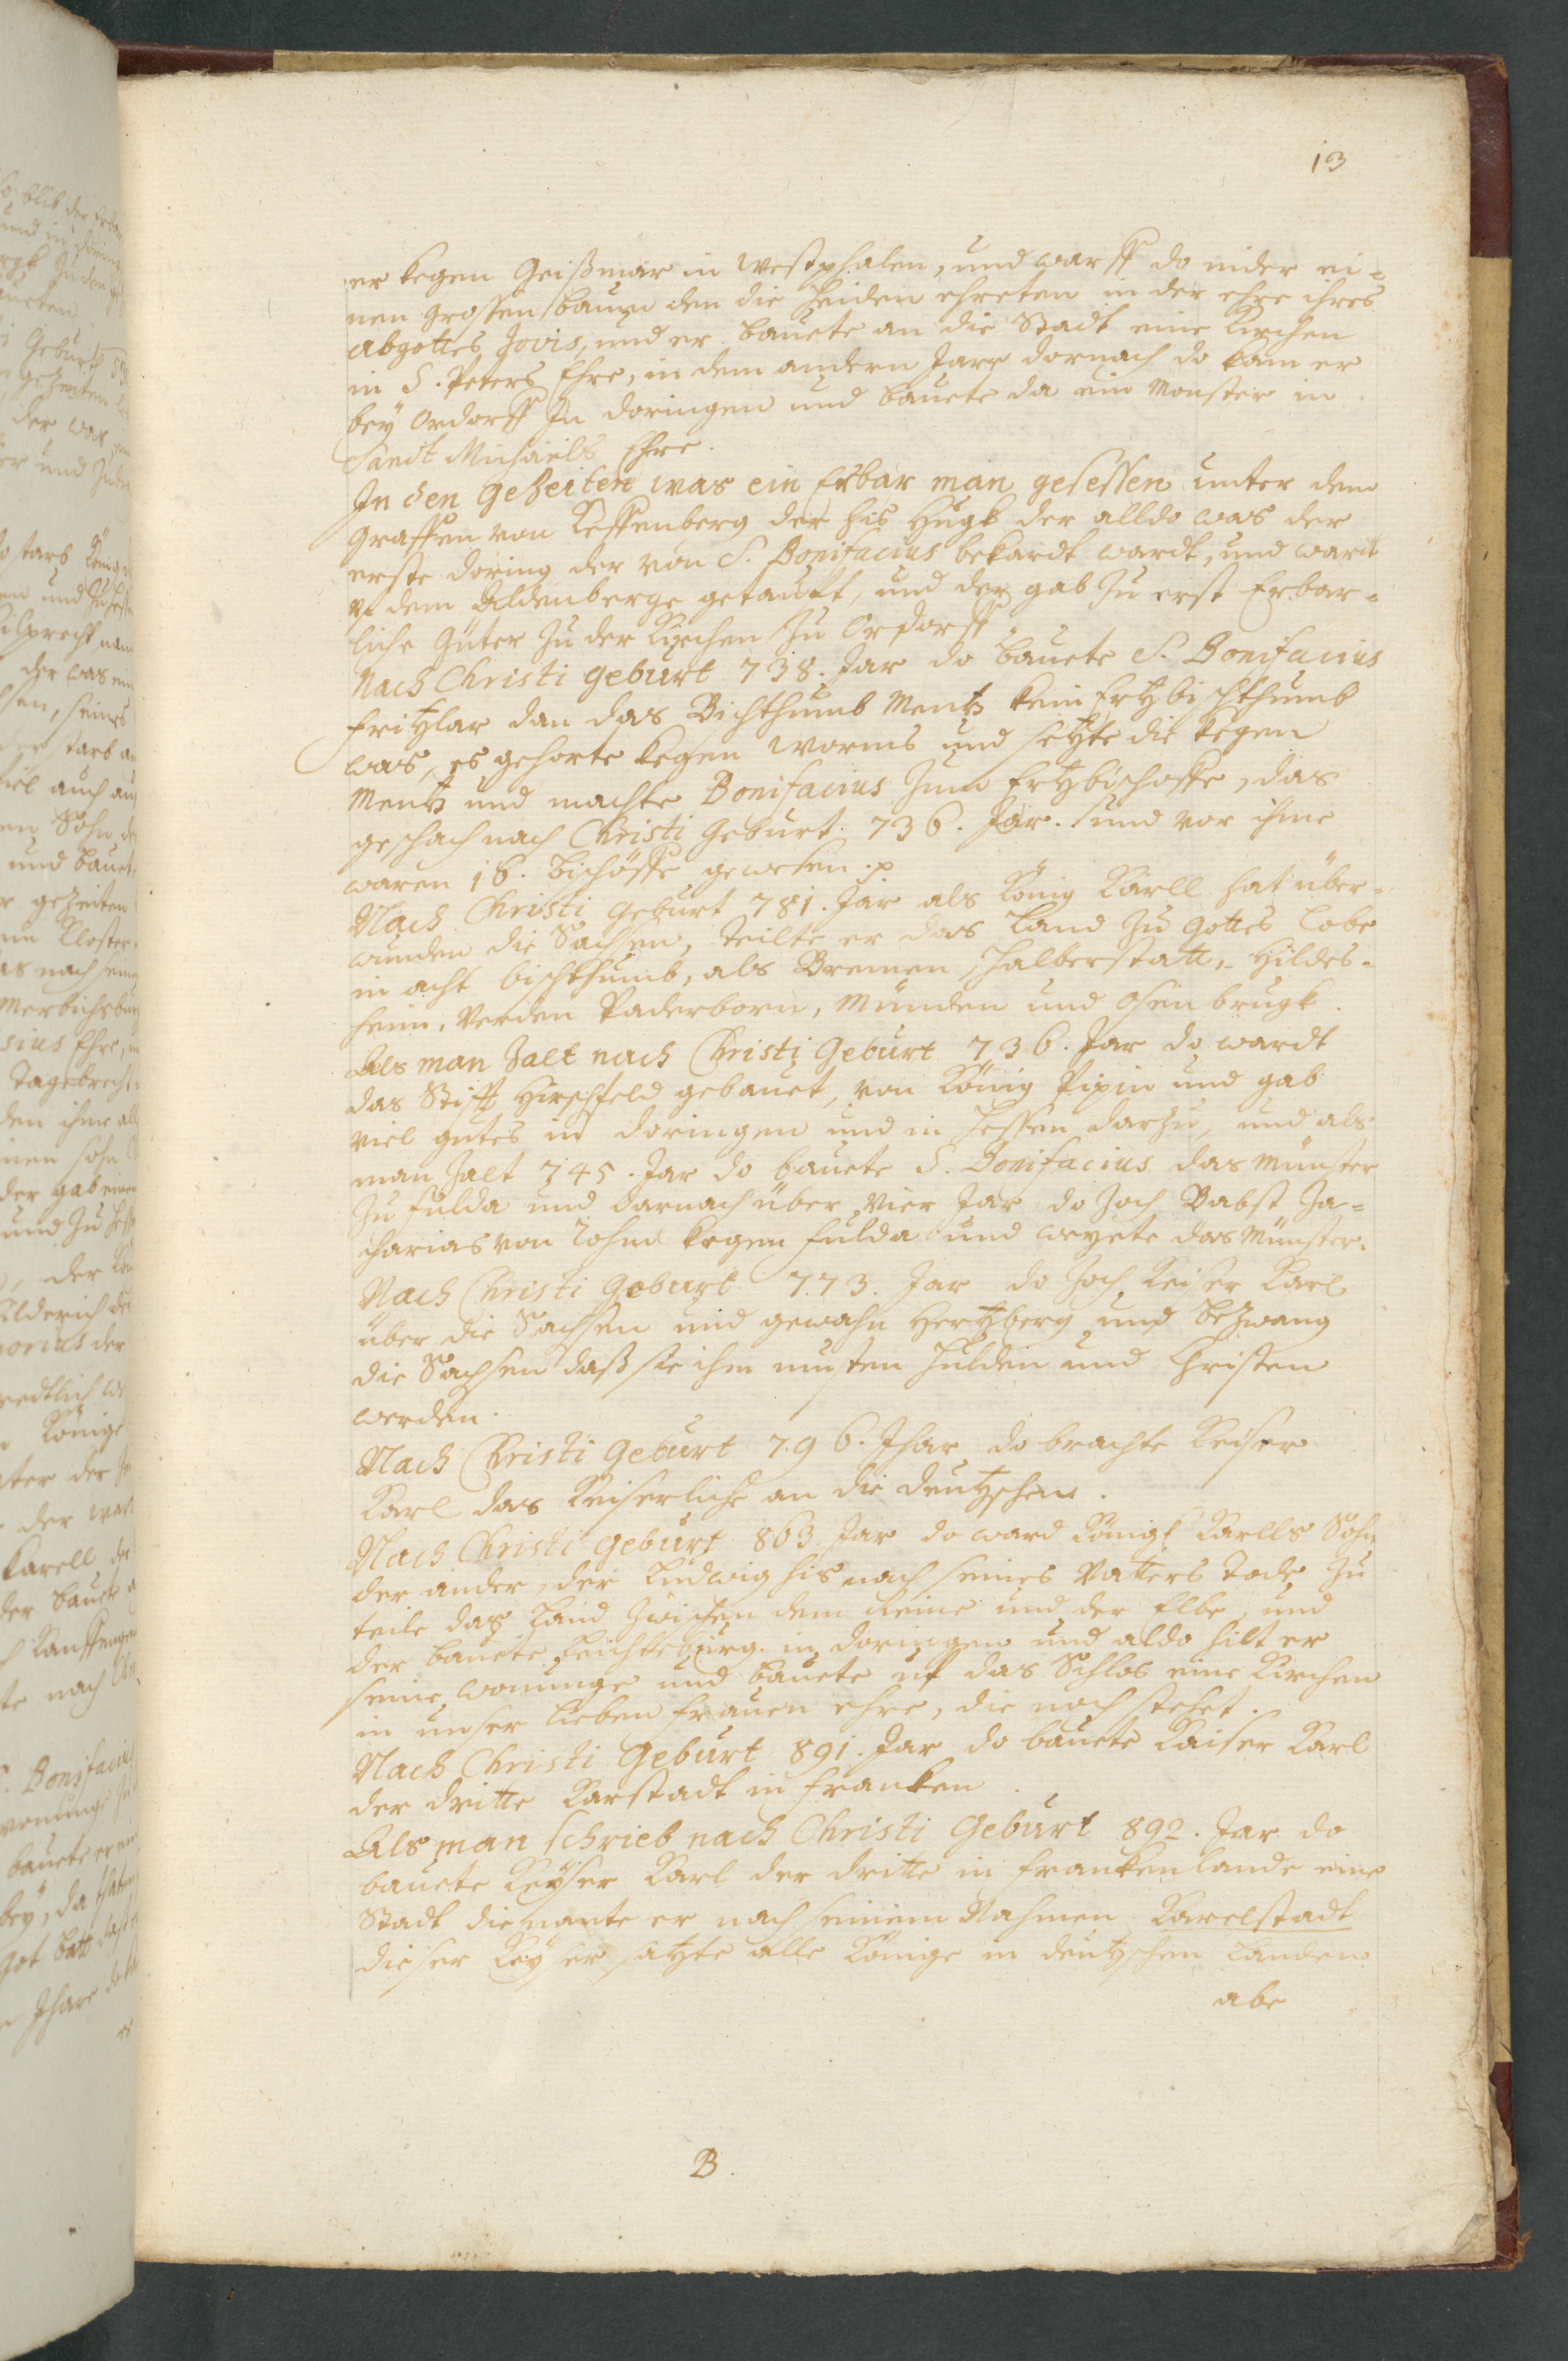 13
er kegen Geißmar in Westphalen, und warff do nider ei=
nen grossen baum den die Heiden ehreten in der ehre ihres
abgottes Jovis, und er bauete an die Stadt eine Kirchen
in S. Peters Ehre, in dem andern Jare dornach do kam er
bey Ordorff In doringen und bauete da ein Monster in
Sanct Michaels Ehre.
In den Gezeiten was ein Erbar man gesessen unter dem
Graffen von Keffenberg der his Hugk der alldo was der
erste doring der von S. Bonifacius bekardt wardt, und wardt
dem Aldenberge getaufft, und der gab zu erst Erbar=
liche Güter zu der Kirchen zu Ordorff
Nach Christi Geburt 738. Jar do bauete S. Bonifacius
Fritzlar dan das Bichthumb Mentz kein Ertzbischthumb
was, es gehorte kegen Worms und setzte die kegen
Mentz und machte Bonifacius zum Ertzbischoffe, das
geschach nach Christi Geburt. 736. Jar. und vor ihme
waren 16. bichöffe gewesen.
Nach Christi Geburt 781. Jar als König Karll hat über=
wunden die Sachsen, teilte er das Land zu Gottes lobe
in acht bischthumb, als Bremen, Halberstatt, Hildes=
heim, Verden Paderborn, Münden und Osenbrugk.
Als man Zalt nach Christi Geburt 736. Jar do wardt
das Stifft Hirschfeld gebauet, von König Pipin und gab
viel gutes in doringen und in Hessen darzu, und als
man Zalt 745. Jar do bauete S. Bonifacius das Münster
zu Fulda und darnach über vier Jar do zoch Babst Za=
charias von Rohm kegen Fulda und weyete das Münster.
Nach Christi Geburt 773. Jar do zoch Keiser Karl
über die Sachsen und gewahn Hertzberg und bezwang
die Sachsen daß sie ihm musten Hulden und Christen
werden.
Nach Christi Geburt 796. Jhar do brachte Keiser
Karl das Keiserliche an die deutzschen.
Nach Christi Geburt 863. Jar do ward Königk Karlls Sohn
der ander, der Ludwig his nach seines Vatters Tode zu
teile das Land zwischen dem Reine und der Elbe, und
der bauete Leichteburg in doringen und aldo hilt er
seine wonunge und bauete uf das Schlos eine Kirchen
in unser lieben Frauen ehre, die noch stehet.
Nach Christi Geburt 891. Jar do bauete Kaiser Karl
der dritte Karstadt in Francken.
Als man schrieb nach Christi Geburt 892. Jar do
bauete Keyser Karl der dritte in Franckenlande eine
Stadt die nante er nach seinem Nahmen Karelstadt
dieser Keyser satzte alle Könige in deutzschen Landen
abe
B.